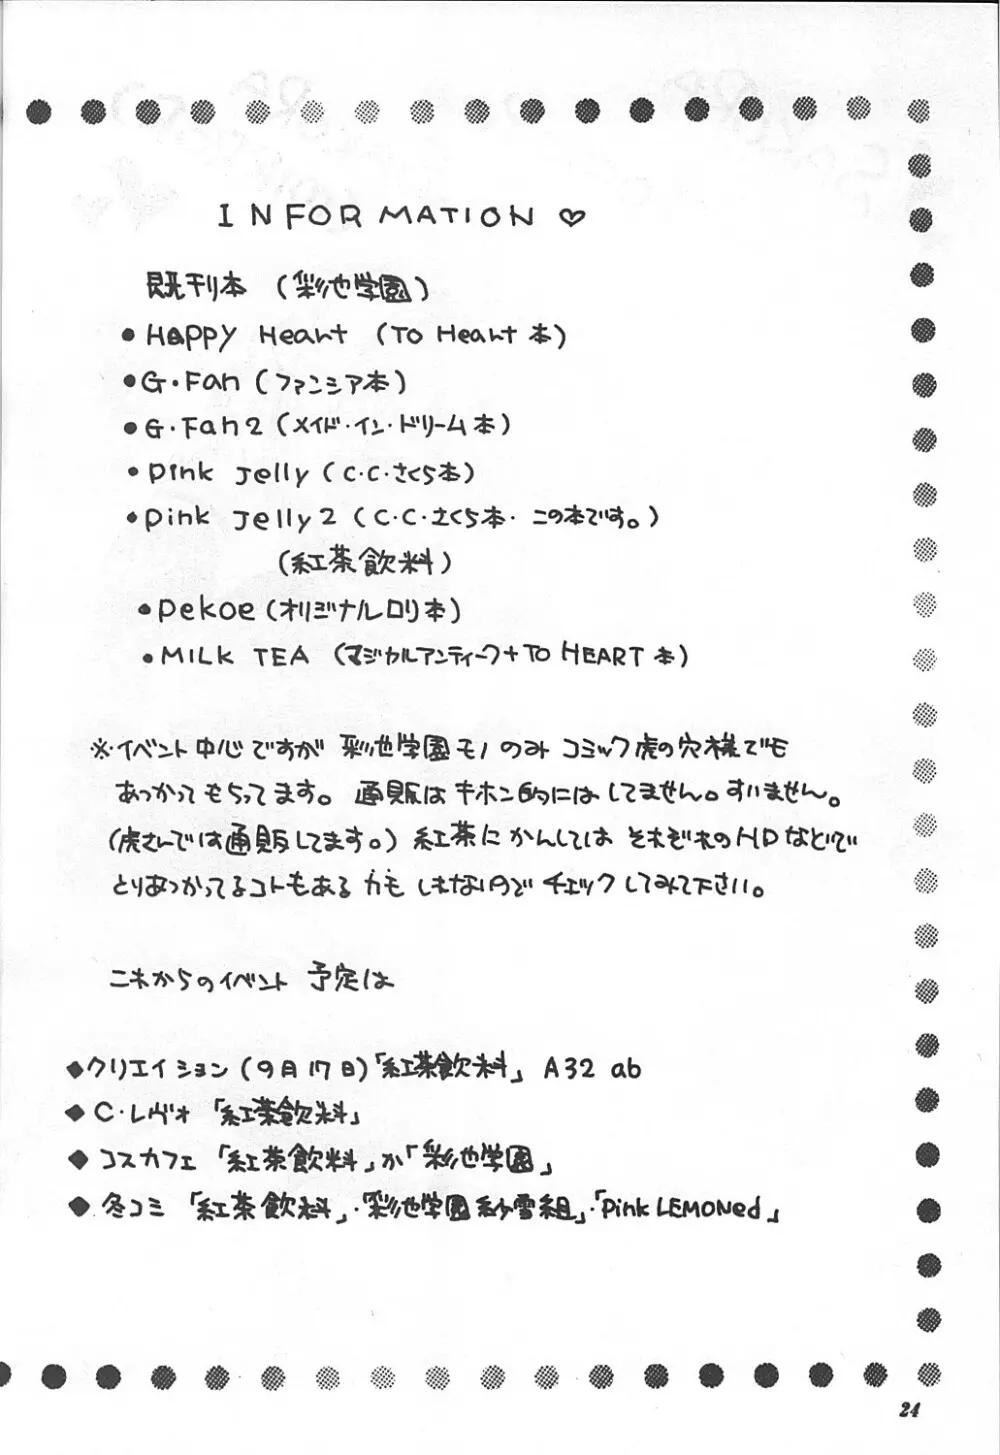 INFORMATION ♡
既刊本 (彩池学園)
●HAPPY Heart (TO Heart本)
●G・Fan (ファンシア本)
●G・Fan2 (メイド・イン・ドリーム本)
●pink Jelly (C・C・さくら本)
●pink Jelly2 (C・C・さくら本・この本です。)
(紅茶飲料)
●pekoe (オリジナルロリ本)
●MILK TEA (マジカルアンティーク+TO HEART本)
※イベント中心ですが 彩池学園モノのみ コミック虎の穴様でも
あつかってもらってます。通販はキホン的にはしてません。すいません。
(虎さんでは通販してます。) 紅茶にかんしては それぞれのHPなどで
とりあつかってるコトもあるかもしれないので チェックしてみて下さい。
これからのイベント 予定は
◆クリエイション(9月17日)「紅茶飲料」 A32 ab
◆C・レヴォ 「紅茶飲料」
◆コスカフェ 「紅茶飲料」か「彩池学園」
◆冬コミ 「紅茶飲料」・「彩池学園 紗雪組」・「Pink LEMONed」
24